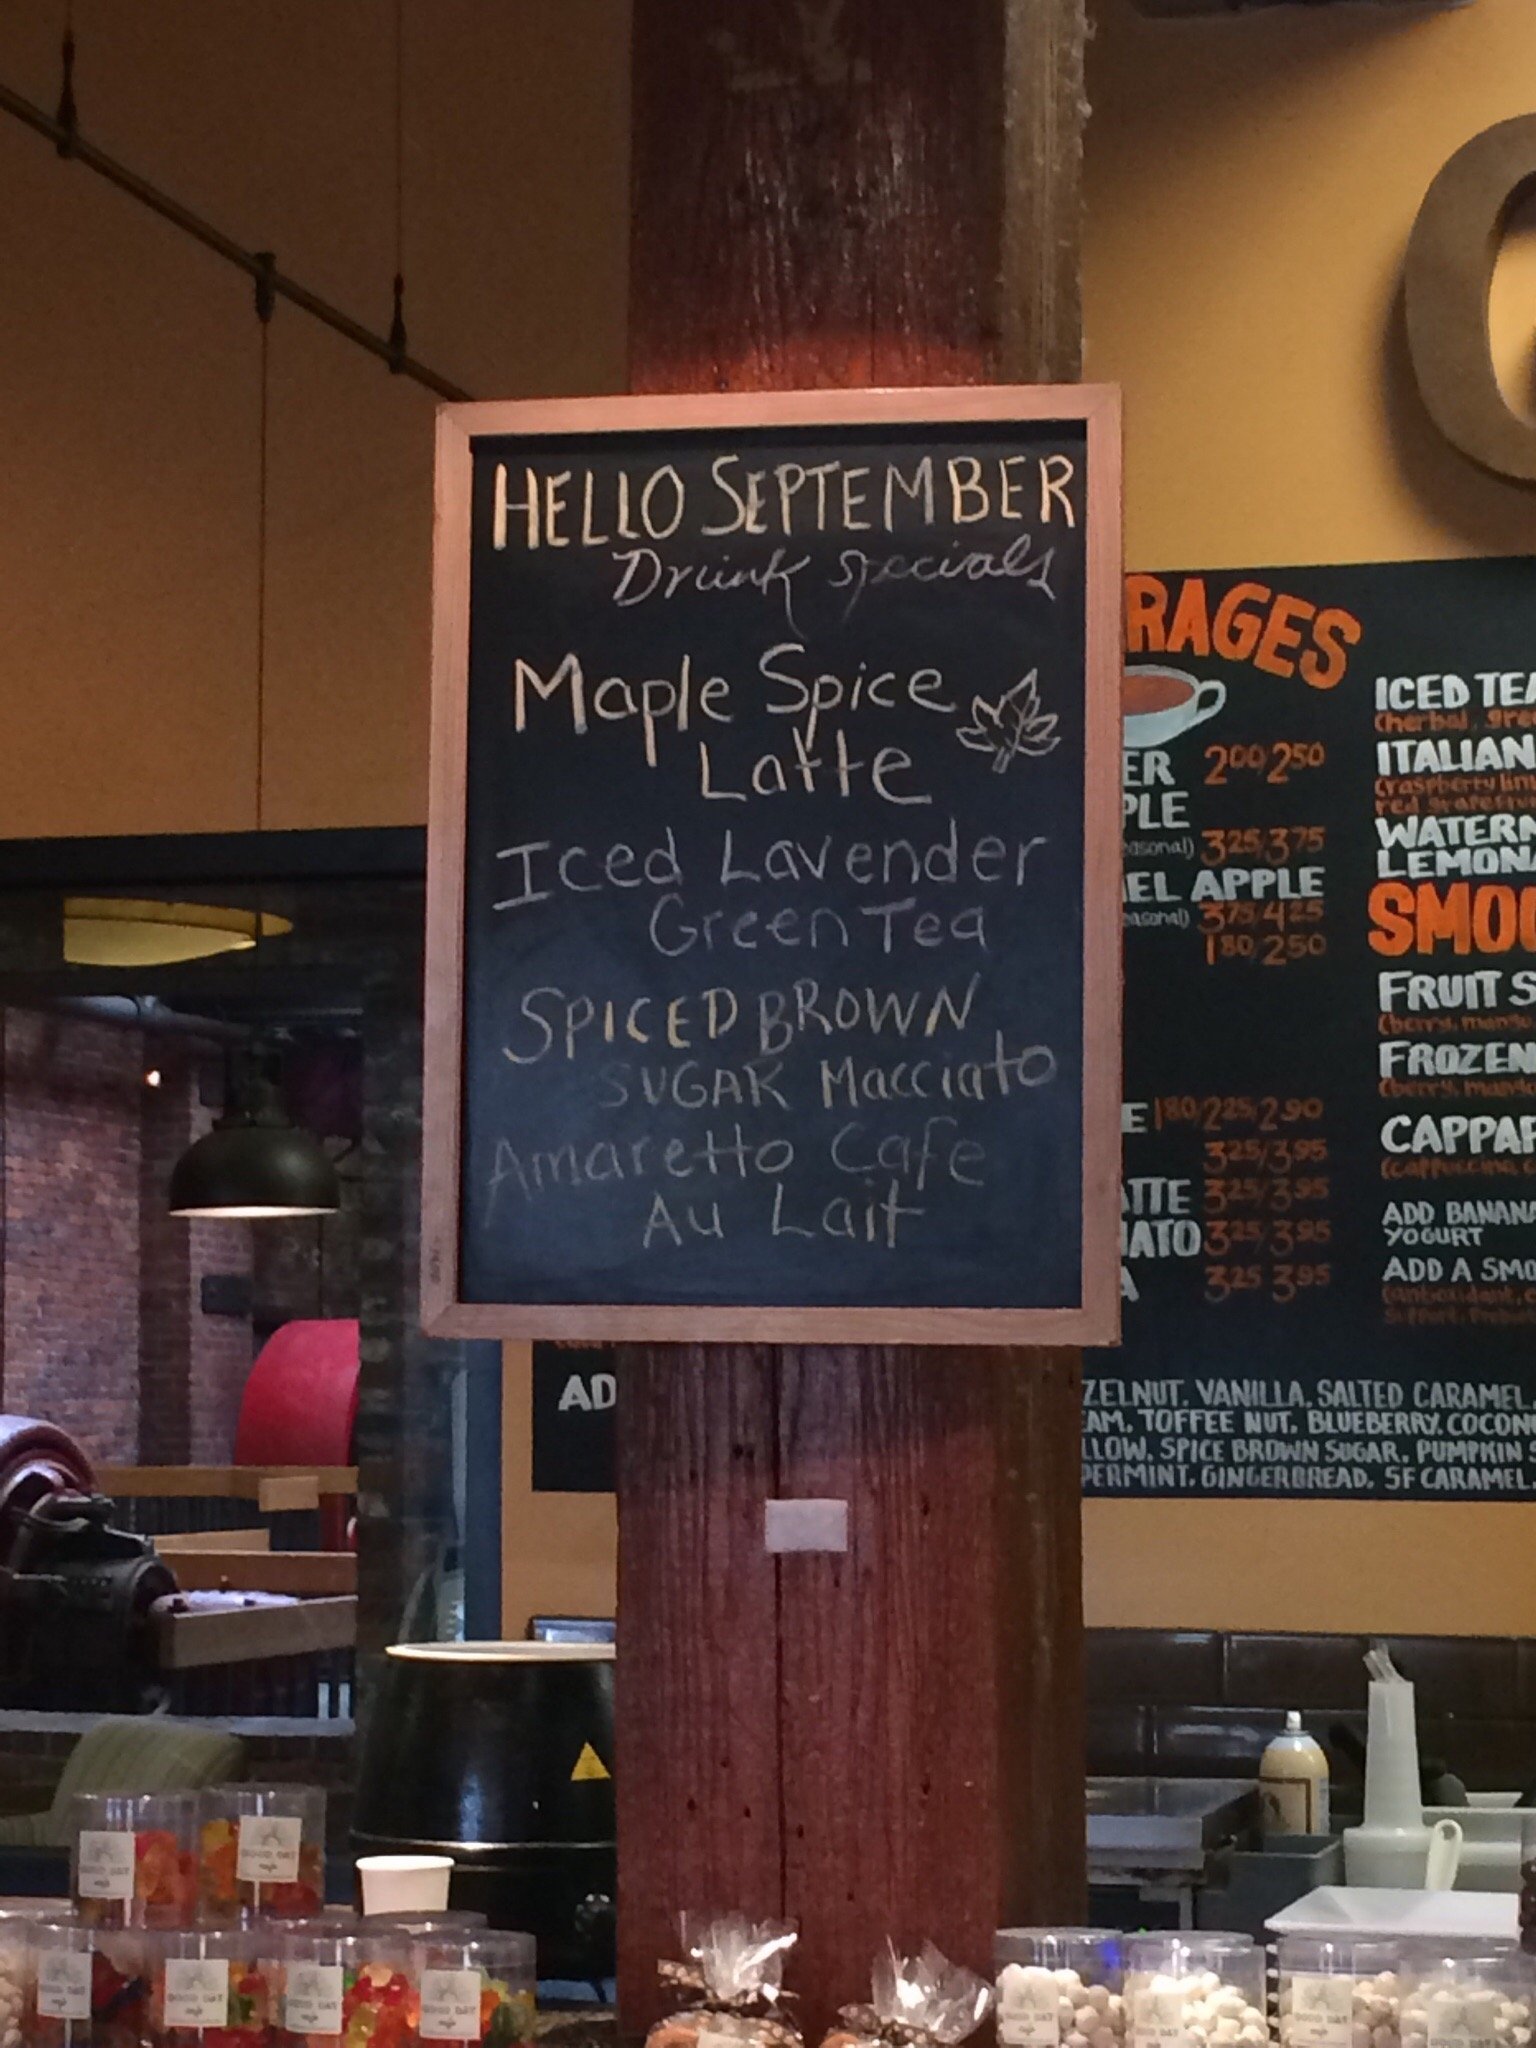 HELLO SEPTEMBER
Drink specials
Maple Spice
Latte
Iced Lavender
Green Tea
SPICED BROWN
SUGAR Macciato
Amaretto Cafe
Au Lait
RAGES
ER 2.00/2.50
PLE
easonal) 3.25/3.75
EL APPLE
easonal) 3.75/4.25
1.80/2.50
E 1.80/2.25/2.90
3.25/3.95
ATTE 3.25/3.95
IATO 3.25/3.95
A 3.25 3.95
ICED TEA
(herbal, gre
ITALIAN
(raspberry lim
red grapefrui
WATERM
LEMONA
SMOO
FRUIT S
(berry, mango
FROZEN
(berry, mango
CAPPAR
(cappuccino,
ADD BANANA
YOGURT
ADD A SMO
(antioxidant,
AD
ZELNUT, VANILLA, SALTED CARAMEL,
EAM, TOFFEE NUT, BLUEBERRY, COCONU
LLOW, SPICE BROWN SUGAR, PUMPKIN S
PERMINT, GINGERBREAD, SF CARAMEL,
GOOD DAY
cafe